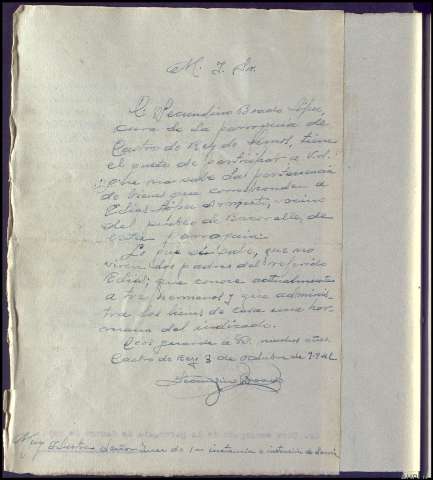 M. I. Sr.
D. Secundino Boado López,
cura de la parroquia de
Castro de Rey de Lemos, tiene
el gusto de participar a Vd.
que no sabe las pertenencias
de bienes que corresponden a
Elías López Armesto, vecino
del pueblo de de
esta parroquia.
Lo que sí sabe, que no
viven los padres del referido
Elías; que conoce actualmente
a tre hermanos, y que adminis-
tra los bienes de casa una her-
mana del indicado.
Dios guarde a V. muchos años.
Castro de Rey 3 de octubre de
Secundino Boado
Muy Ilustre Señor Juez de 1ª instancia e instrucción de